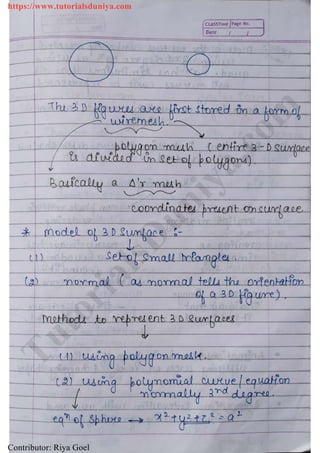 https://www.tutorialsduniya.com
CLASSTIME Page No.
Date / /
The 3D figures are first stored in a form of
wiremesh.
polygon mesh (entire 3-D surface
is divided in set of polygons).
Basically a Δ'r mesh
coordinates present on surface
* Model of 3D Surface :-
(1) Set of small triangles.
(2) normal (as normal tells the orientation
of a 3D figure).
Methods to represent 3D surfaces
(1) using polygon mesh.
(2) using polynomial curve/equation
normally 3rd degree.
eqn of sphere → x²+y²+z² = a²
TutorialsDuniya.com
Contributor: Riya Goel